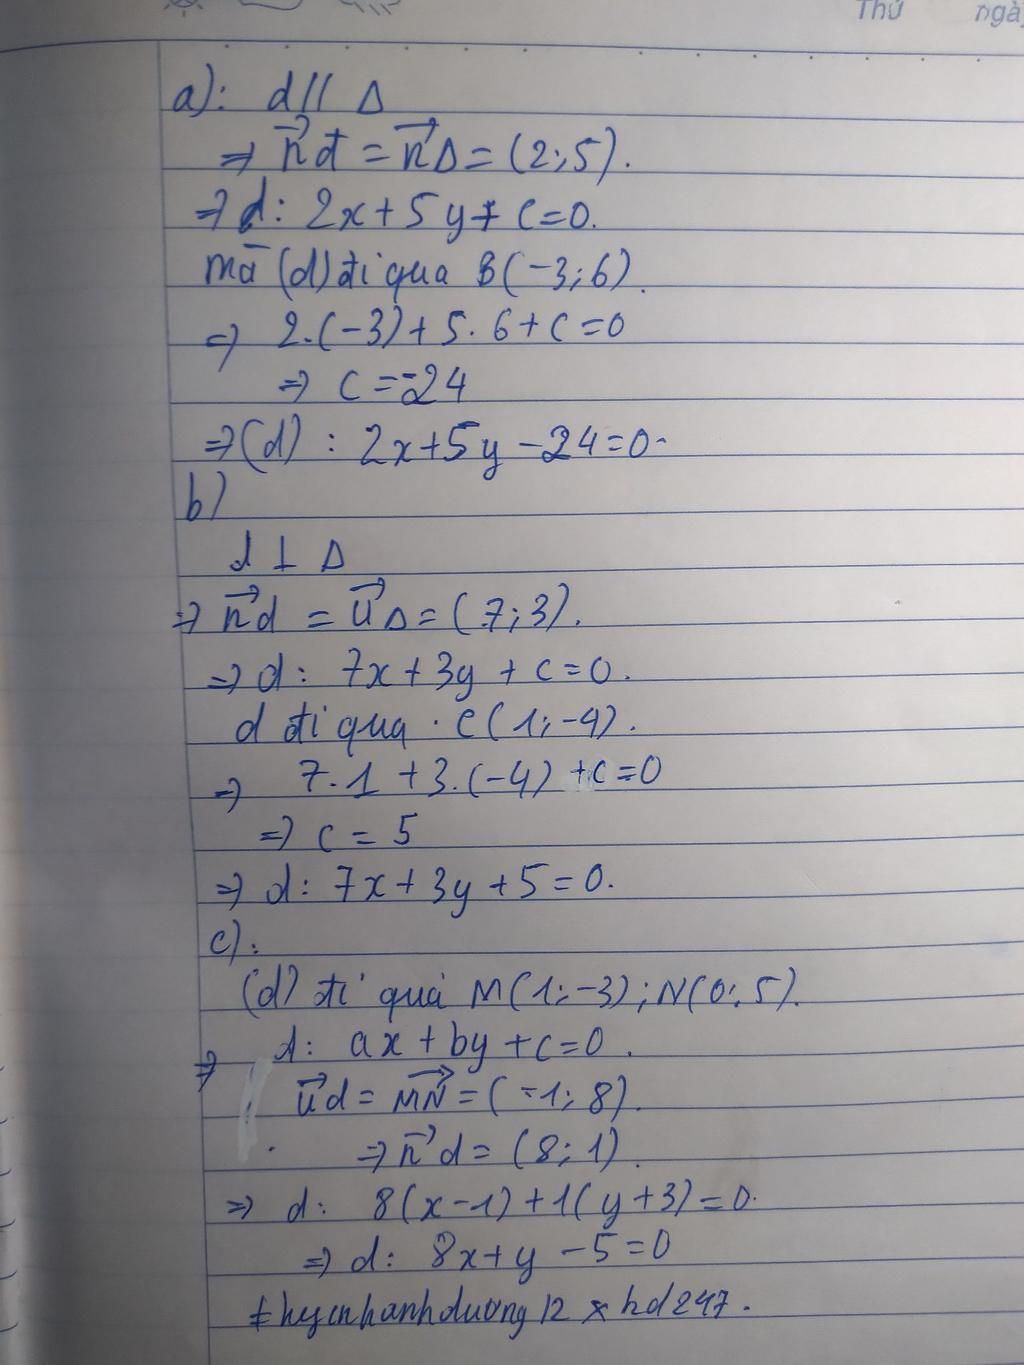 Thứ ngà
a): d // Δ
⇒ n⃗d = n⃗Δ = (2;5).
⇒ d: 2x + 5y + c = 0.
mà (d) đi qua B(-3;6).
⇒ 2.(-3) + 5.6 + c = 0
⇒ c = -24
⇒ (d) : 2x + 5y - 24 = 0.
b)
d ⊥ Δ
⇒ n⃗d = u⃗Δ = (7;3).
⇒ d: 7x + 3y + c = 0.
d đi qua C(1;-4).
⇒ 7.1 + 3.(-4) + c = 0
⇒ c = 5
⇒ d: 7x + 3y + 5 = 0.
c):
(d) đi qua M(1;-3); N(0;5).
⇒ d: ax + by + c = 0.
u⃗d = MN⃗ = (-1;8).
⇒ n⃗d = (8;1).
⇒ d: 8(x-1) + 1(y+3) = 0.
⇒ d: 8x + y - 5 = 0